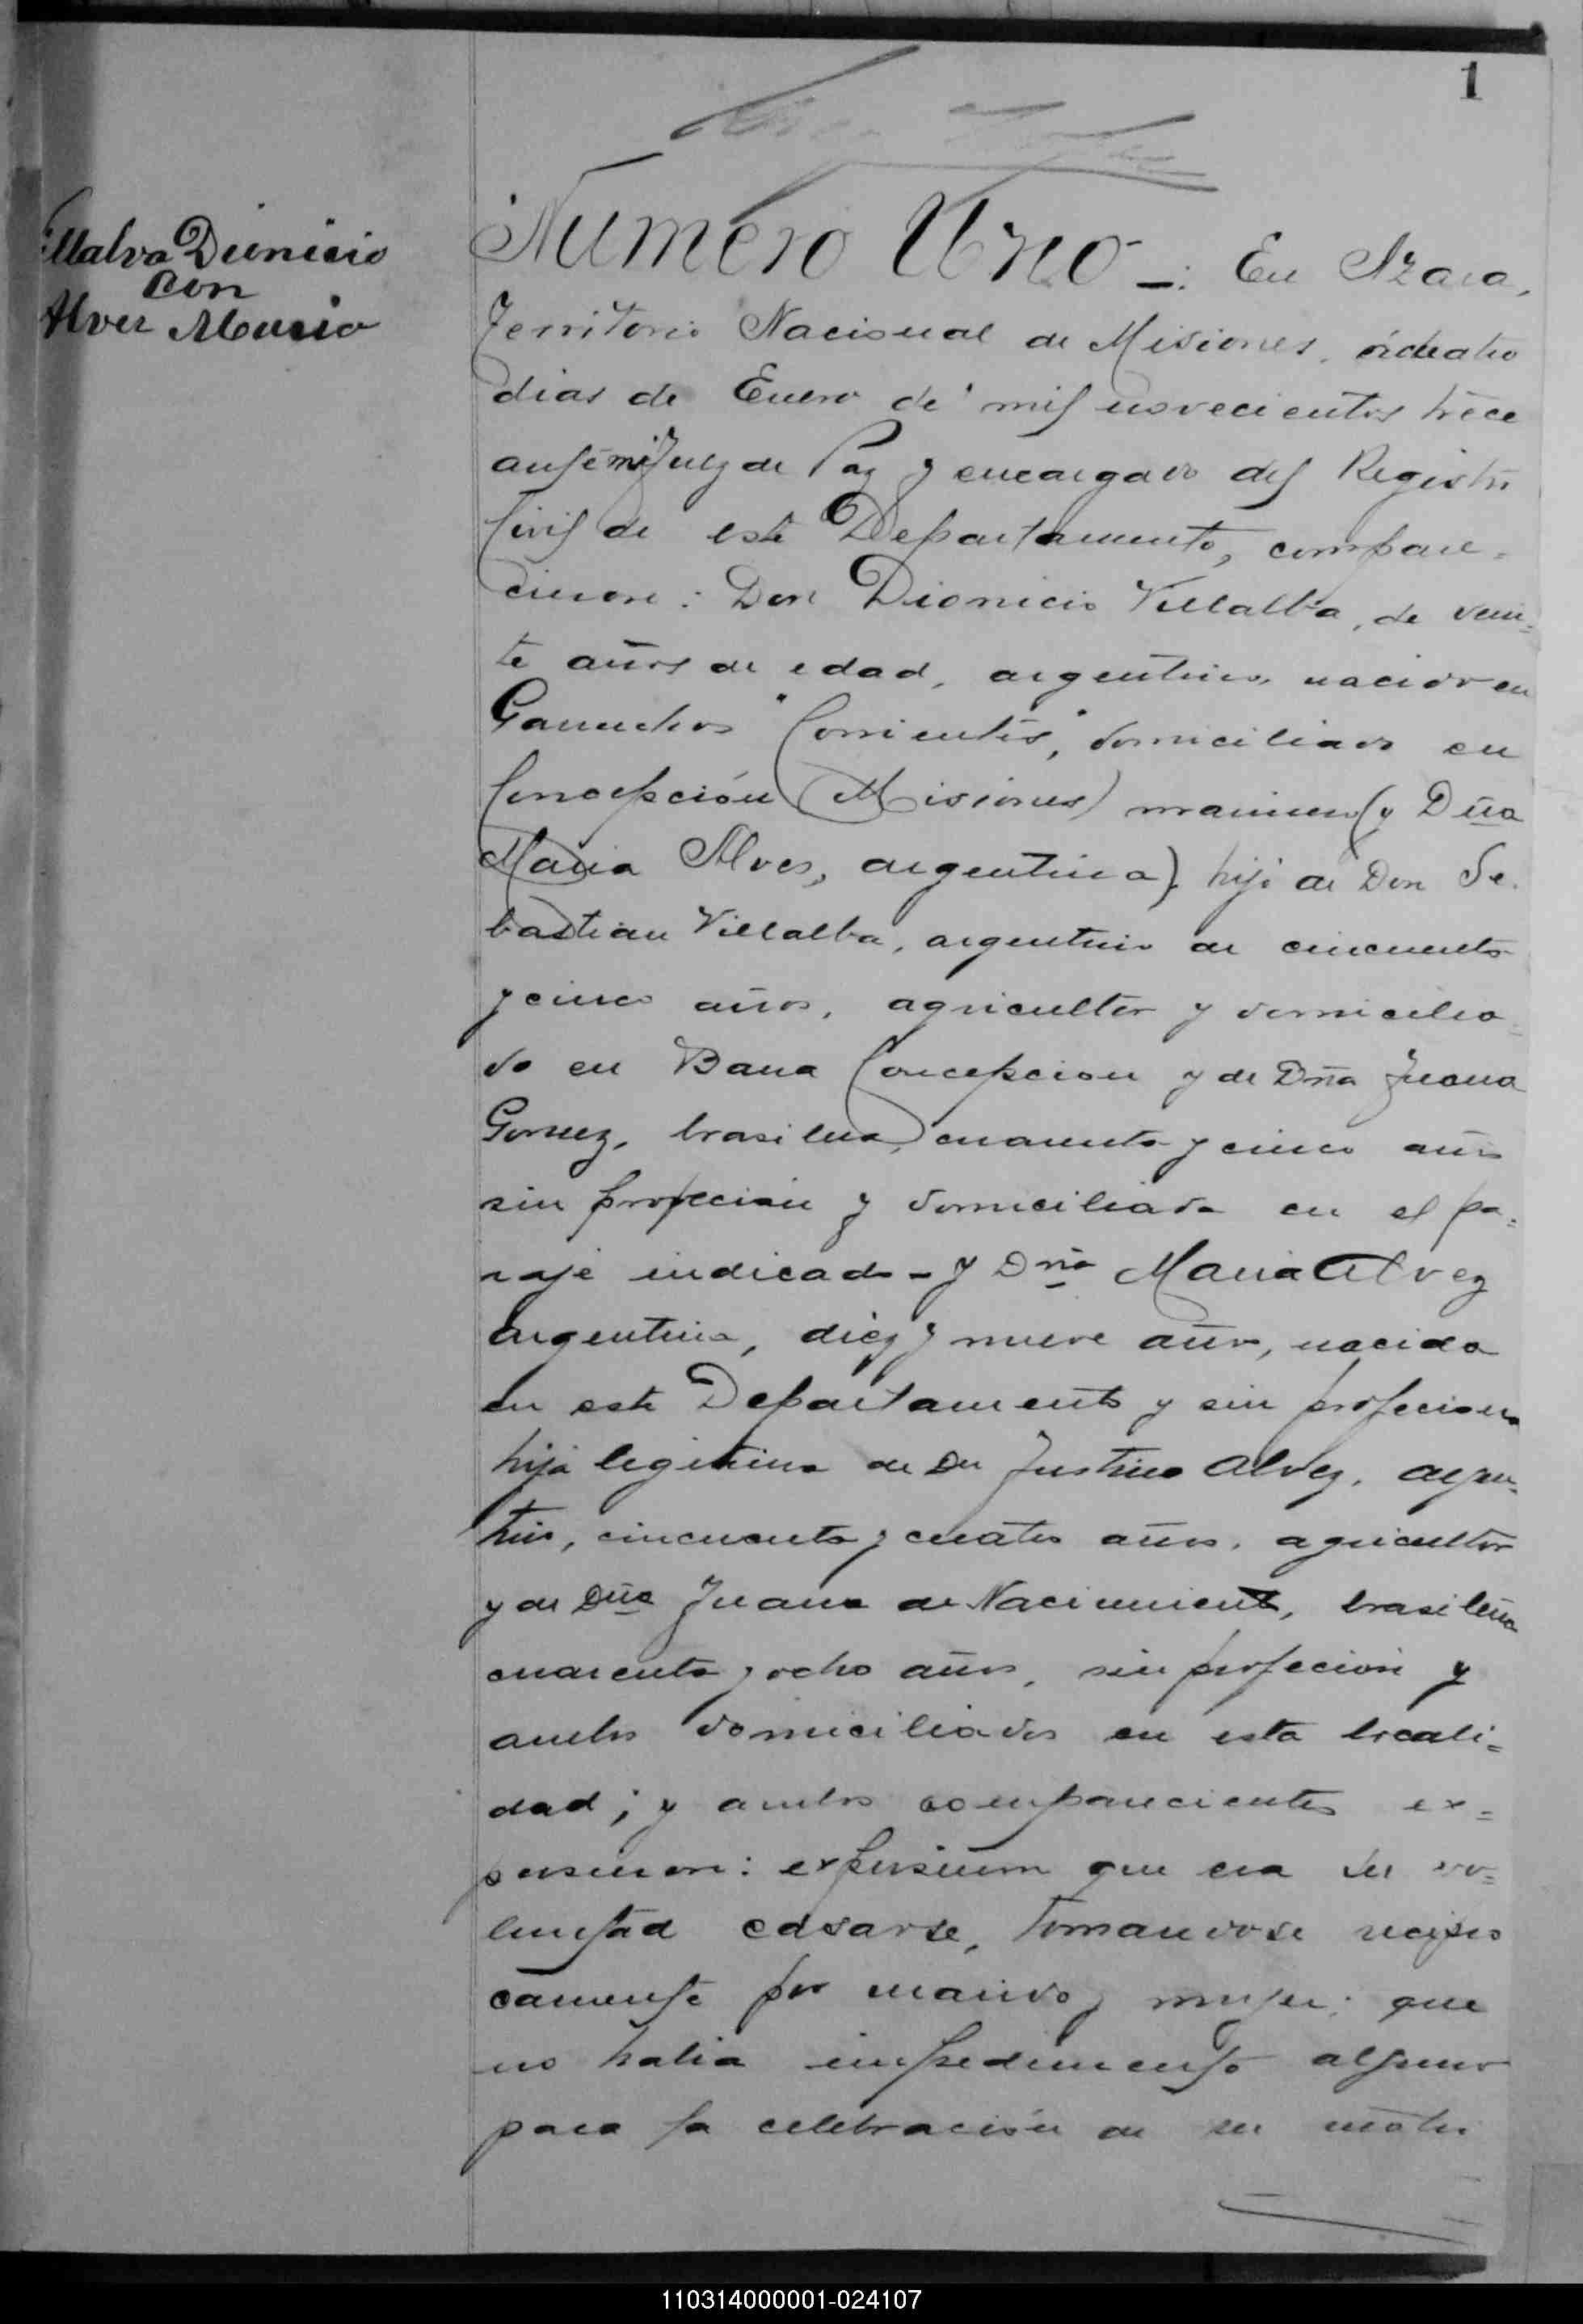 1
Villalva Dionicio
con
Alvez Maria
Numero Uno –: En Azara,
Territorio Nacional de Misiones, á cuatro
dias de Enero de mil novecientos trece
ante mi Juez de Paz y encargado del Registro
Civil de este Departamento, compare=
cieron: Don Dionicio Villalba, de vein=
te años de edad, argentino, nacido en
Garruchos "Corrientes", domiciliado en
Concepción (Misiones) marinero (y Dña
Maria Alves, argentina), hijo de Don Se-
bastian Villalba, argentino de cincuenta
y cinco años, agricultor y domicilia=
do en Barra Concepcion y de Dña Juana
Gomez, brasilera, cuarenta y cinco años
sin profecion y domiciliada en el pa=
raje indicado – y Dña Maria Alvez
argentina, diez y nueve años, nacida
en este Departamento y sin profecion
hija legitima de Dn Justino Alvez, argen=
tino, cincuenta y cuatro años, agricultor
y de Dña Juana de Nacimiento, brasileña
cuarenta y ocho años, sin profecion y
ambos domiciliados en esta locali=
dad; y ambos comparecientes ex=
pusieron: expusieron que era su vo=
luntad casarse, tomandose recipro
camente por marido y mujer; que
no habia impedimento alguno
para la celebración de su matri
110314000001-024107